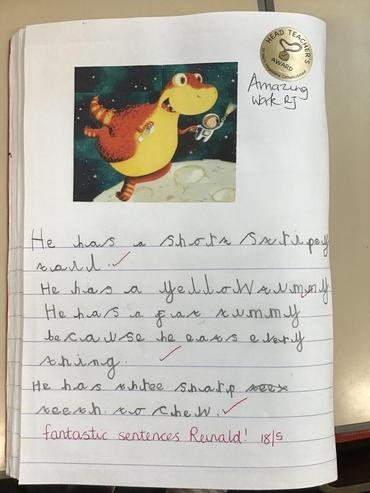 HEAD TEACHER'S
AWARD
Amazing
work RJ
He has a short stripey
tail.
He has a yellow tummy
He has a fat tummy
because he eats every
thing.
He has three sharp
teeth to chew.
fantastic sentences Reinald! 18/5